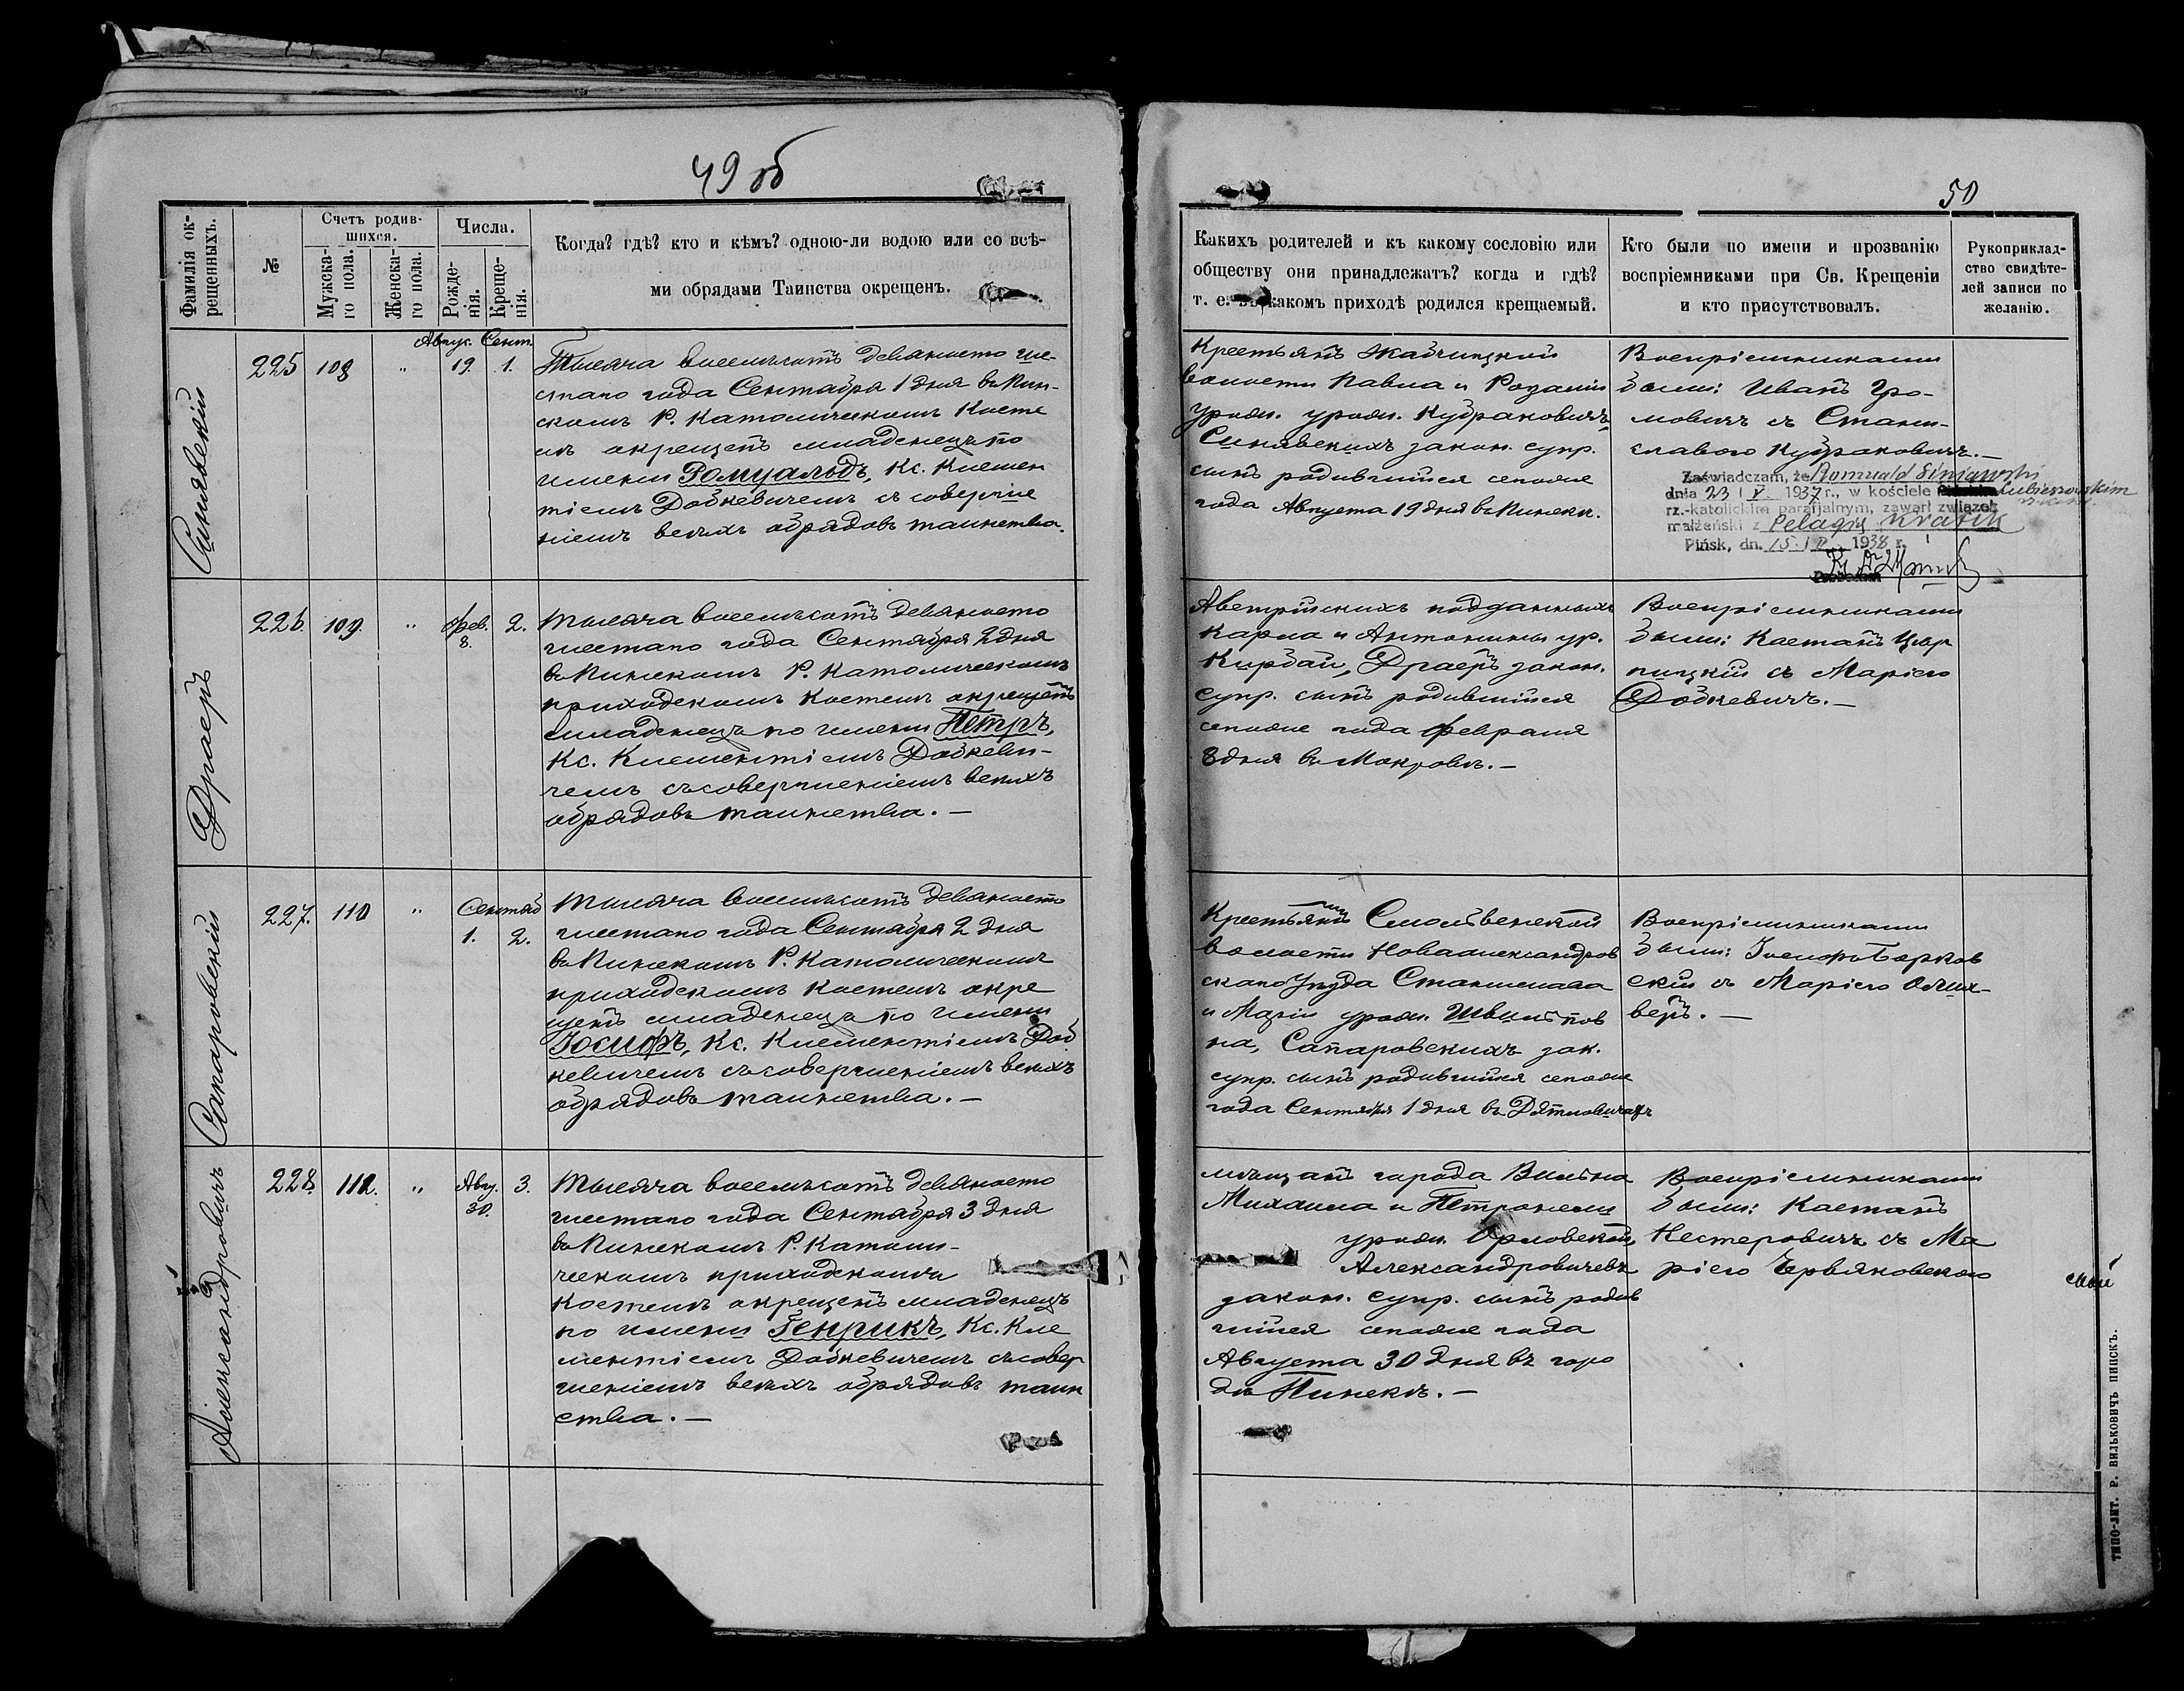 49 об
50
Фамилія ок-
рещенныхъ.
№
Счетъ родив-
шихся.
Мужска-
го пола.
Женска-
го пола.
Числа.
Рожде-
нія.
Креще-
нія.
Когда? гдѣ? кто и кѣмъ? одною-ли водою или со всѣ-
ми обрядами Таинства окрещенъ.
Какихъ родителей и къ какому сословію или
обществу они принадлежатъ? когда и гдѣ?
т. е. въ какомъ приходѣ родился крещаемый.
Кто были по имени и прозванію
воспріемниками при Св. Крещеніи
и кто присутствовалъ.
Рукоприклад-
ство свидѣте-
лей записи по
желанію.
Синявскій
225 108 " Авгус. 19. Сент. 1.
Тысяча восемьсотъ девяносто ше-
стаго года Сентября 1 дня въ Пин-
скомъ Р. Католическомъ Косте
лѣ окрещенъ младенецъ по
имени Ромуальдъ, Кс. Клемен
тіемъ Добкевичемъ съ соверше
ніемъ всѣхъ обрядовъ таинства.
Крестьянъ Жабчицкой
волости Павла и Розаліи
урожд. Кудраковичъ,
Синявскихъ закон. супр.
сынъ родившійся сегоже
года Августа 19 дня въ Пинскѣ.
Воспріемниками
были: Иванъ Гро-
мовичъ съ Стани-
славою Кудраковичъ.—
Zaświadczam, że Romuald Siniawski
dnia 23 | V 1937 r., w kościele Lubieszowskim
rz.-katolickim parafjalnym, zawarł związek
małżeński z Pelagją
Pińsk, dn. 15 1938 r.
Драеръ
226. 109. " Фев. 8. 2.
Тысяча восемьсотъ девяносто
шестаго года Сентября 2 дня
въ Пинскомъ Р. Католическомъ
приходскомъ Костелѣ окрещенъ
младенецъ по имени Петръ,
Кс. Клементіемъ Добкеви-
чемъ съ совершеніемъ всѣхъ
обрядовъ таинства.—
Австрійскихъ подданныхъ
Карла и Антонины ур.
Кирбай, Драеръ закон.
супр. сынъ родившійся
сегоже года Февраля
8 дня въ Мокровѣ.—
Воспріемниками
были: Каетанъ
съ Маріею
Добкевичъ.—
Сапаровскій
227. 110 " Сентяб 1. 2.
Тысяча восемьсотъ девяносто
шестаго года Сентября 2 дня
въ Пинскомъ Р. Католическомъ
приходскомъ Костелѣ окре
щенъ младенецъ по имени
Іосифъ, Кс. Клементіемъ Доб
кевичемъ съ совершеніемъ всѣхъ
обрядовъ таинства.—
Крестьянъ
волости Новоалександров
скаго Уѣзда Станислава
и Маріи урожд.
на, Сапаровскихъ зак.
супр. сынъ родившійся сегоже
года Сентября 1 дня въ Дятловичахъ
Воспріемниками
были: Іосифъ Борков
скій съ Маріею
Александровичъ
228. 112. " Авгу. 30. 3.
Тысяча восемьсотъ девяносто
шестаго года Сентября 3 дня
въ Пинскомъ Р. Католи-
ческомъ приходскомъ
Костелѣ окрещенъ младенецъ
по имени Генрикъ, Кс. Кле
ментіемъ Добкевичемъ съ совер
шеніемъ всѣхъ обрядовъ таин
ства.—
мѣщанъ города Вильна
Михаила и Петронели
урожд. Орловской,
Александровичевъ
закон. супр. сынъ родив
шійся сегоже года
Августа 30 дня въ горо
дѣ Пинскѣ.—
Воспріемниками
были: Каетанъ
Нестеровичъ съ Ма
ріею Червяковскою
ТИПО-ЛИТ. Р. ВИЛЬКОВИЧЪ ПИНСКЪ.